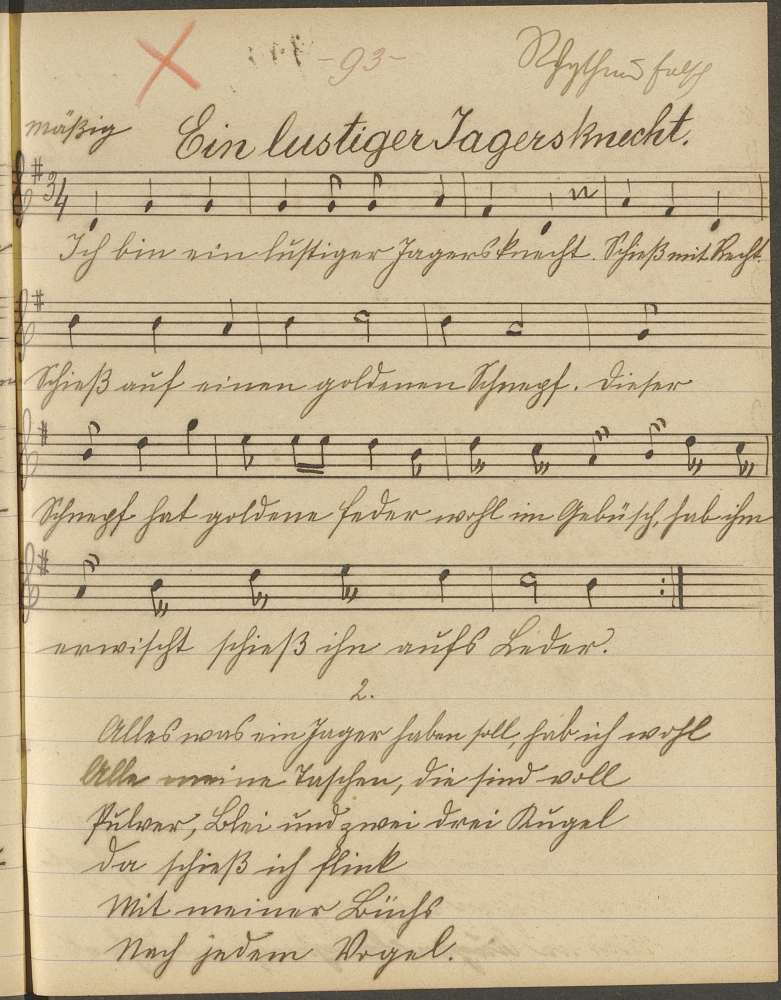 -93-
Rhythmus falsch
mäßig
Ein lustiger Jagersknecht.
3/4
Ich bin ein lustiger Jagersknecht. Schieß mit Recht.
Schieß auf einen goldenen Schnepf. Dieser
Schnepf hat goldene Feder wohl im Gebüsch, hab ihm
erwischt schieß ihn aufs Leder.
2.
Alles was ein Jager haben soll, hab ich wohl
Alle meine Taschen, die sind voll
Pulver, Blei und zwei drei Kugel
Da schieß ich flink
Mit meiner Büchs
Nach jedem Vogel.